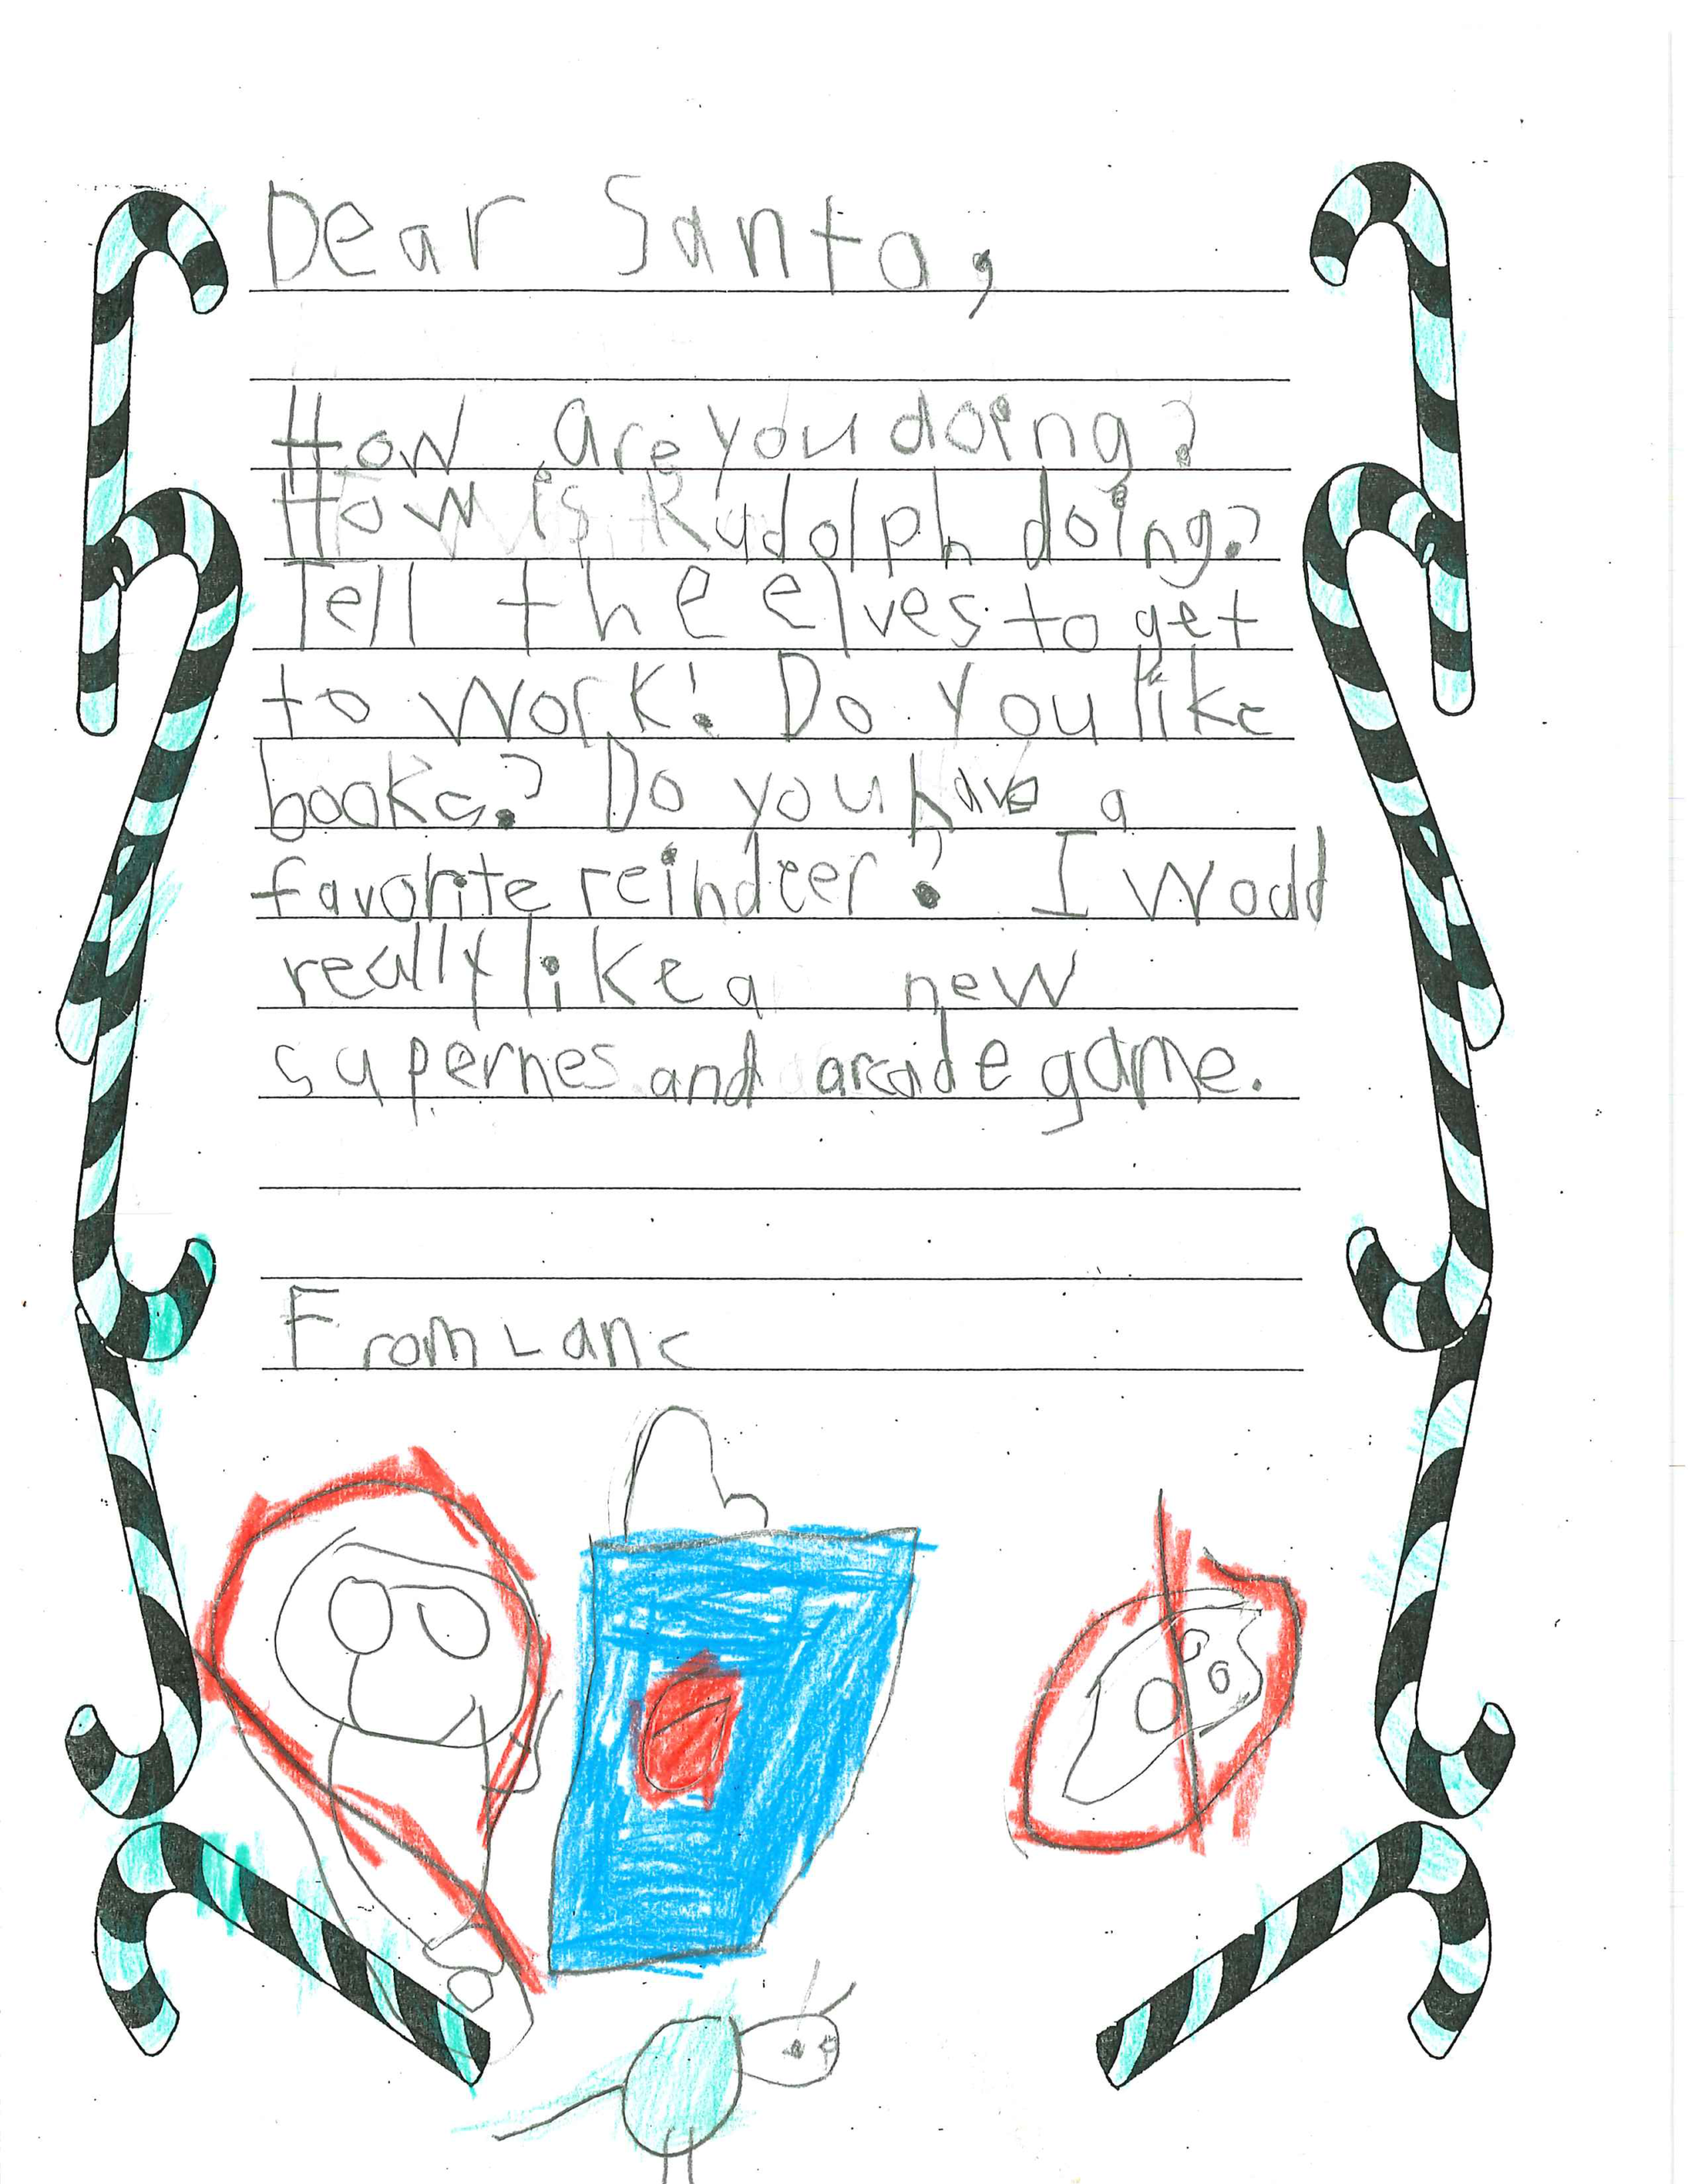 Dear Santa,
How are you doing?
How is Rudolph doing?
Tell the elves to get
to work! Do you like
books? Do you have a
favorite reindeer? I would
really like a new
supernes and arcade game.
From Lane